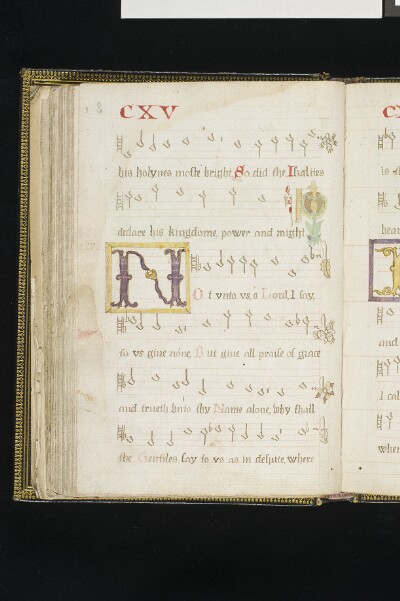 CXV
his holynes moste bright, So did the Isralties
declare his kingdome, power and might
NOt vnto vs, ô Lord, I say,
to vs giue none But giue all praise of grace
and trueth vnto thy Name alone, why shall
the Gentiles say to vs as in despite, where
is
hear
and
I cal
wher